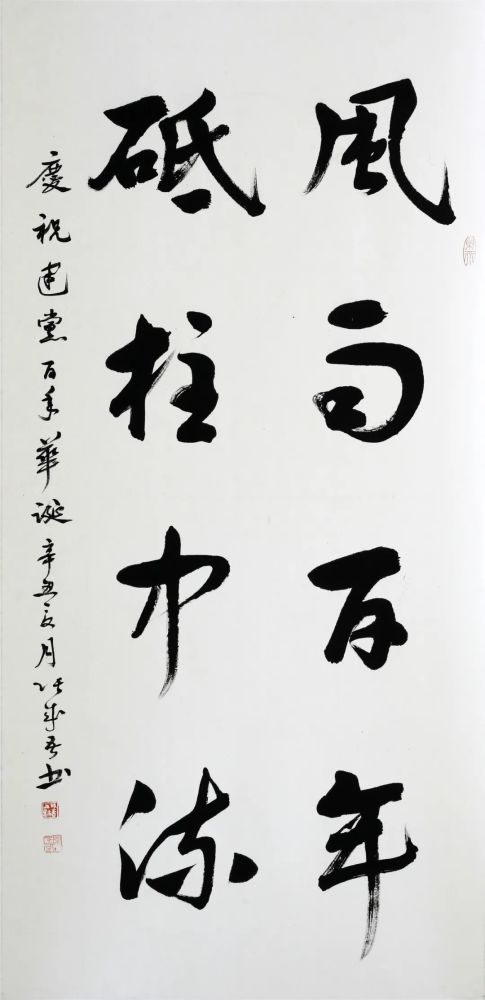 風雨百年
砥柱中流
慶祝建黨百年華誕辛丑
月
書